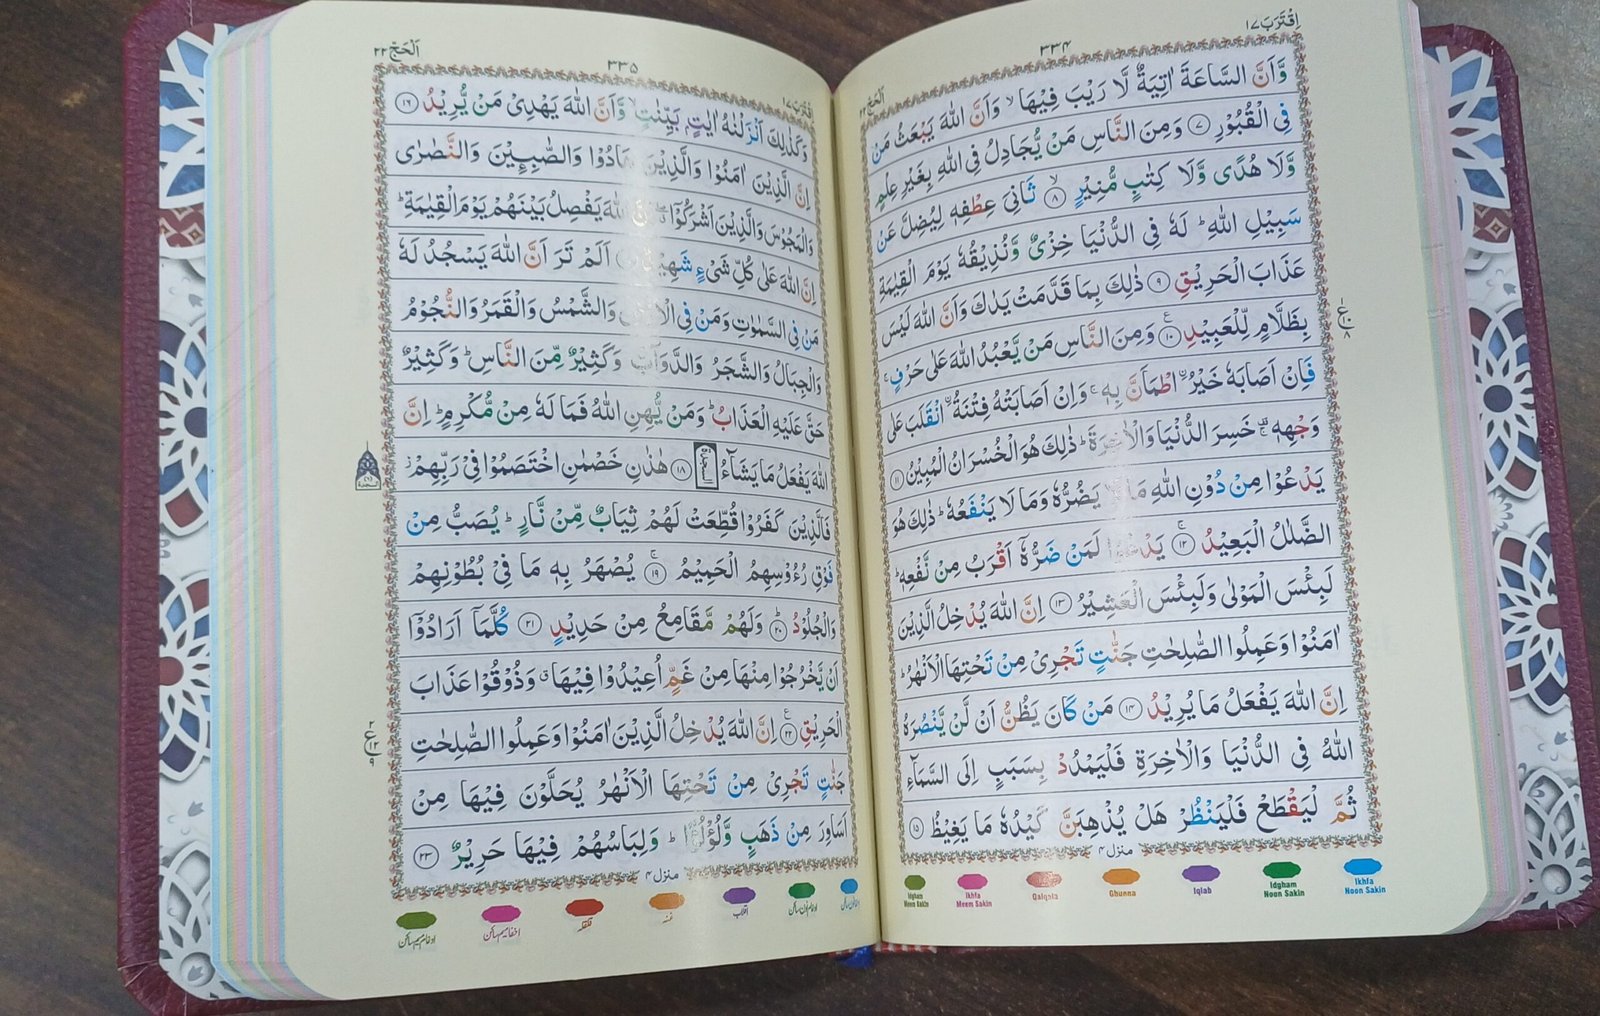 اِقْتَرَبَ ١٧
٣٣٤
اَلْحَجّ ٢٢
وَّاَنَّ السَّاعَةَ اٰتِيَةٌ لَّا رَيْبَ فِيْهَا ۙ وَاَنَّ اللّٰهَ يَبْعَثُ مَنْ
فِى الْقُبُوْرِ ﴿٧﴾ وَمِنَ النَّاسِ مَنْ يُّجَادِلُ فِى اللّٰهِ بِغَيْرِ عِلْمٍ
وَّلَا هُدًى وَّلَا كِتٰبٍ مُّنِيْرٍ ۙ﴿٨﴾ ثَانِىَ عِطْفِهٖ لِيُضِلَّ عَنْ
سَبِيْلِ اللّٰهِ ؕ لَهٗ فِى الدُّنْيَا خِزْىٌ وَّنُذِيْقُهٗ يَوْمَ الْقِيٰمَةِ
عَذَابَ الْحَرِيْقِ ﴿٩﴾ ذٰلِكَ بِمَا قَدَّمَتْ يَدٰكَ وَاَنَّ اللّٰهَ لَيْسَ
بِظَلَّامٍ لِّلْعَبِيْدِ ﴿١٠﴾ وَمِنَ النَّاسِ مَنْ يَّعْبُدُ اللّٰهَ عَلٰى حَرْفٍ ۚ
فَاِنْ اَصَابَهٗ خَيْرُ ۨاطْمَاَنَّ بِهٖ ۚ وَاِنْ اَصَابَتْهُ فِتْنَةُ ۨانْقَلَبَ عَلٰى
وَجْهِهٖ ۚ خَسِرَ الدُّنْيَا وَالْاٰخِرَةَ ؕ ذٰلِكَ هُوَ الْخُسْرَانُ الْمُبِيْنُ ﴿١١﴾
يَدْعُوْا مِنْ دُوْنِ اللّٰهِ مَا لَا يَضُرُّهٗ وَمَا لَا يَنْفَعُهٗ ؕ ذٰلِكَ هُوَ
الضَّلٰلُ الْبَعِيْدُ ۚ﴿١٢﴾ يَدْعُوْا لَمَنْ ضَرُّهٗۤ اَقْرَبُ مِنْ نَّفْعِهٖ ؕ
لَبِئْسَ الْمَوْلٰى وَلَبِئْسَ الْعَشِيْرُ ﴿١٣﴾ اِنَّ اللّٰهَ يُدْخِلُ الَّذِيْنَ
اٰمَنُوْا وَعَمِلُوا الصّٰلِحٰتِ جَنّٰتٍ تَجْرِىْ مِنْ تَحْتِهَا الْاَنْهٰرُ ؕ
اِنَّ اللّٰهَ يَفْعَلُ مَا يُرِيْدُ ﴿١٤﴾ مَنْ كَانَ يَظُنُّ اَنْ لَّنْ يَّنْصُرَهُ
اللّٰهُ فِى الدُّنْيَا وَالْاٰخِرَةِ فَلْيَمْدُدْ بِسَبَبٍ اِلَى السَّمَآءِ
ثُمَّ لْيَقْطَعْ فَلْيَنْظُرْ هَلْ يُذْهِبَنَّ كَيْدُهٗ مَا يَغِيْظُ ﴿١٥﴾
منزل ٤
Idgham Meem Sakin
Ikhfa Meem Sakin
Qalqala
Ghunna
Iqlab
Idgham Noon Sakin
Ikhfa Noon Sakin
اَلْحَجّ ٢٢
٣٣٥
اِقْتَرَبَ ١٧
وَكَذٰلِكَ اَنْزَلْنٰهُ اٰيٰتٍۢ بَيِّنٰتٍ ۙ وَّاَنَّ اللّٰهَ يَهْدِىْ مَنْ يُّرِيْدُ ﴿١٦﴾
اِنَّ الَّذِيْنَ اٰمَنُوْا وَالَّذِيْنَ هَادُوْا وَالصّٰبِـِٕيْنَ وَالنَّصٰرٰى
وَالْمَجُوْسَ وَالَّذِيْنَ اَشْرَكُوْۤا ۖ اِنَّ اللّٰهَ يَفْصِلُ بَيْنَهُمْ يَوْمَ الْقِيٰمَةِ ؕ
اِنَّ اللّٰهَ عَلٰى كُلِّ شَىْءٍ شَهِيْدٌ اَلَمْ تَرَ اَنَّ اللّٰهَ يَسْجُدُ لَهٗ
مَنْ فِى السَّمٰوٰتِ وَمَنْ فِى الْاَرْضِ وَالشَّمْسُ وَالْقَمَرُ وَالنُّجُوْمُ
وَالْجِبَالُ وَالشَّجَرُ وَالدَّوَآبُّ وَكَثِيْرٌ مِّنَ النَّاسِ ؕ وَكَثِيْرٌ
حَقَّ عَلَيْهِ الْعَذَابُ ؕ وَمَنْ يُّهِنِ اللّٰهُ فَمَا لَهٗ مِنْ مُّكْرِمٍ ؕ اِنَّ
اللّٰهَ يَفْعَلُ مَا يَشَآءُ السجدة ﴿١٨﴾ هٰذٰنِ خَصْمٰنِ اخْتَصَمُوْا فِىْ رَبِّهِمْ ؗ
فَالَّذِيْنَ كَفَرُوْا قُطِّعَتْ لَهُمْ ثِيَابٌ مِّنْ نَّارٍ ؕ يُصَبُّ مِنْ
فَوْقِ رُءُوْسِهِمُ الْحَمِيْمُ ۚ﴿١٩﴾ يُصْهَرُ بِهٖ مَا فِىْ بُطُوْنِهِمْ
وَالْجُلُوْدُ ؕ﴿٢٠﴾ وَلَهُمْ مَّقَامِعُ مِنْ حَدِيْدٍ ﴿٢١﴾ كُلَّمَاۤ اَرَادُوْۤا
اَنْ يَّخْرُجُوْا مِنْهَا مِنْ غَمٍّ اُعِيْدُوْا فِيْهَا ۗ وَذُوْقُوْا عَذَابَ
الْحَرِيْقِ ﴿٢٢﴾ اِنَّ اللّٰهَ يُدْخِلُ الَّذِيْنَ اٰمَنُوْا وَعَمِلُوا الصّٰلِحٰتِ
جَنّٰتٍ تَجْرِىْ مِنْ تَحْتِهَا الْاَنْهٰرُ يُحَلَّوْنَ فِيْهَا مِنْ
اَسَاوِرَ مِنْ ذَهَبٍ وَّلُؤْلُؤًا ؕ وَلِبَاسُهُمْ فِيْهَا حَرِيْرٌ ﴿٢٣﴾
منزل ٤
ادغام میم ساکن
اخفا میم ساکن
قلقلہ
غنہ
اقلاب
ادغام نون ساکن